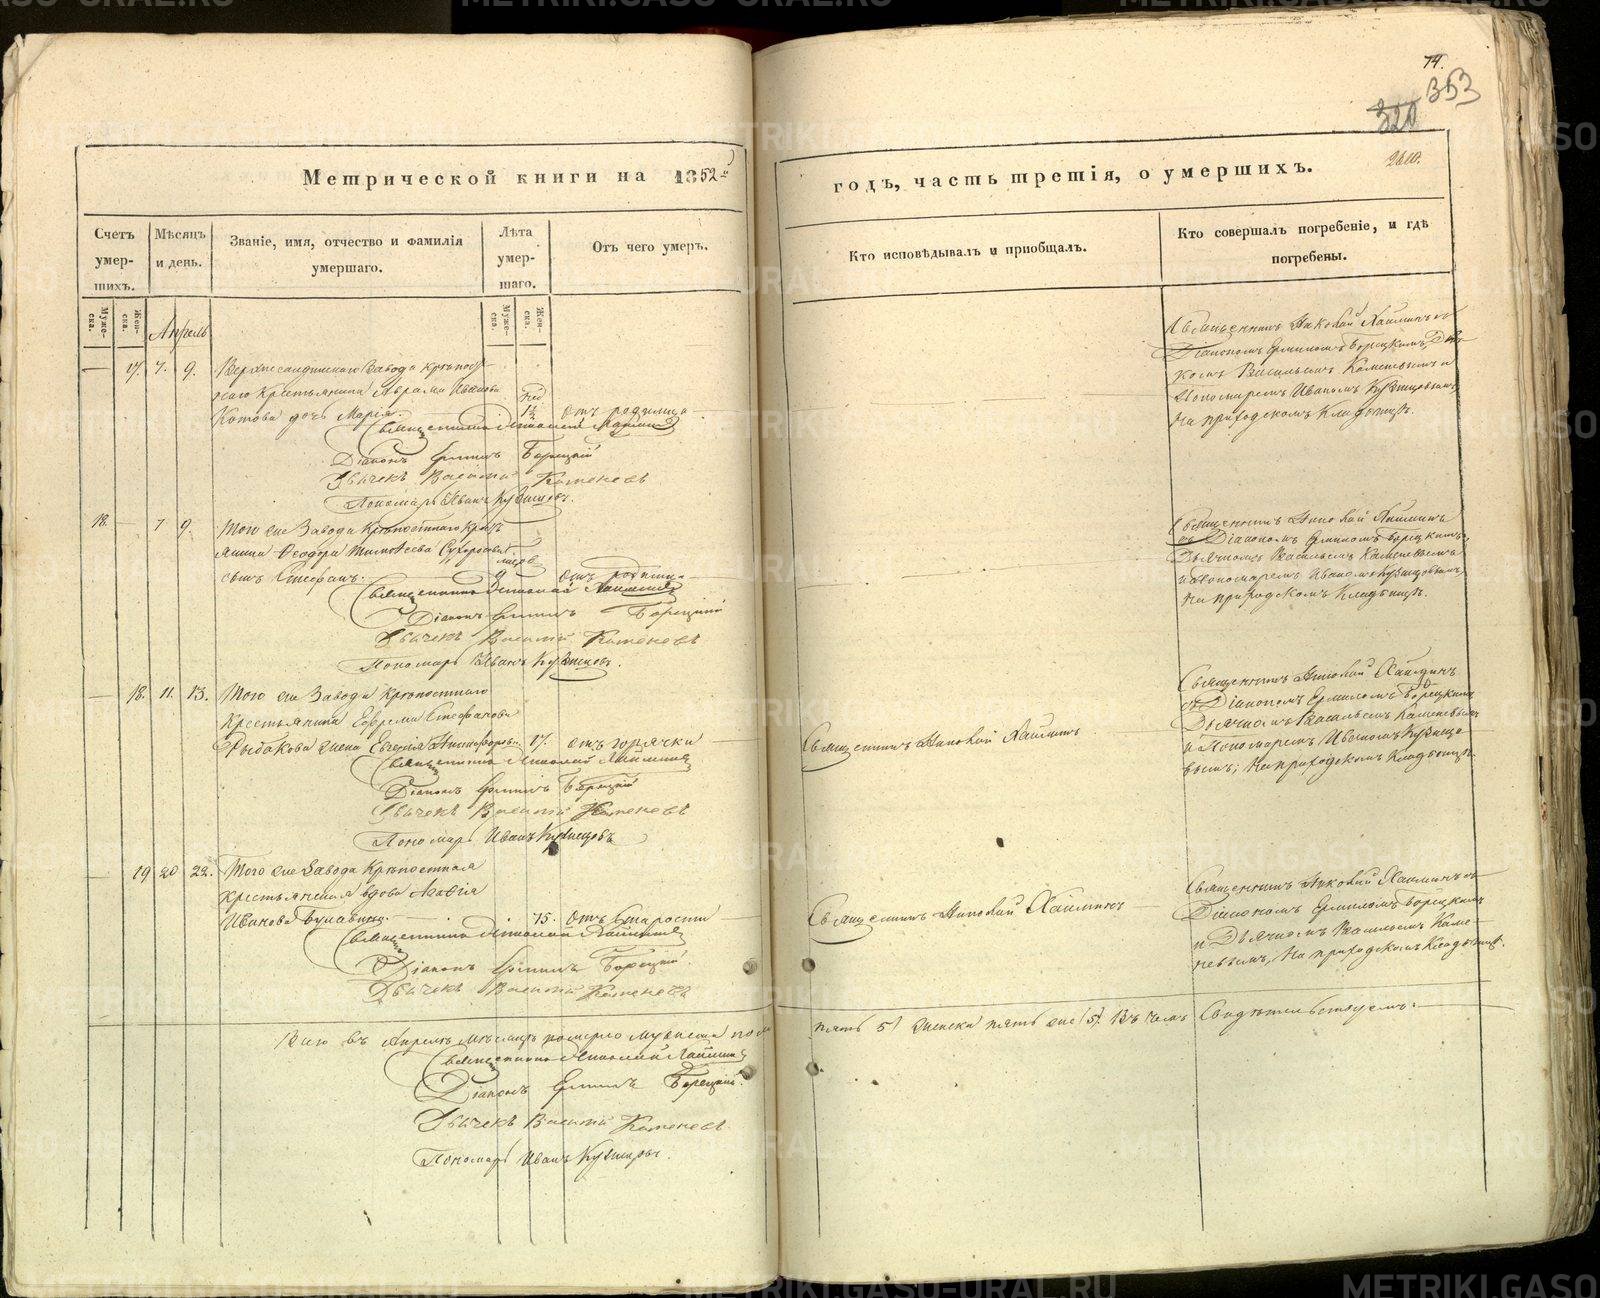 74.
353
320
2610.
Метрической книги на 1852 й
годъ, часть третія, о умершихъ.
Счетъ умер-шихъ.
Мѣсяцъ и день.
Званіе, имя, отчество и фамилія умершаго.
Лѣта умер-шаго.
Отъ чего умеръ.
Кто исповѣдывалъ и пріобщалъ.
Кто совершалъ погребеніе, и гдѣ погребены.
Муже-ска.
Жен-ска.
Муже-ска.
Жен-ска.
Апрель
17. 7. 9. Верхнесалдинскаго Завода крѣпост
наго Крестьянина Аврама Иванова
Котова дочь Марія. отъ родимца
Священникъ Николай Хаймин
Діаконъ Ермилъ Борецкій
Дьячекъ Василій Каменевъ
Пономарь Иванъ Кузнецовъ.
Священникъ Николай Хайминъ съ
Діакономъ Ермиломъ Борецкимъ, Дья
комъ Васильемъ Каменевымъ и
Пономаремъ Иваномъ Кузнецовымъ,
На приходскомъ Кладбищѣ.
18. 7 9. Того же Завода Крѣпостнаго Крестья
янина Ѳеодора Тимоѳеева
сынъ Стефанъ. 9 отъ родим
Священникъ Николай Хаймин
Діаконъ Ермилъ Борецкій
Дьячекъ Василій Каменевъ
Пономарь Иванъ Кузнецовъ.
Священникъ Николай Хайминъ
съ Діакономъ Ермиломъ Борецкимъ,
Дьячкомъ Васильемъ Каменевымъ
и Пономаремъ Иваномъ Кузнецовымъ,
На приходскомъ Кладбищѣ.
18. 11. 13. Того же Завода крѣпостнаго
Крестьянина Ефрема Стефанова
Рыбакова жена Евгенія Никифорова 17. отъ горячки
Священникъ Николай Хаймин
Діаконъ Ермилъ Борецкій
Дьячекъ Василій Каменевъ
Пономарь Иванъ Кузнецовъ
Священникъ Николай Хайминъ
Священникъ Николай Хайминъ
съ Діакономъ Ермиломъ Борецкимъ
Дьячкомъ Васильемъ Каменевымъ
и Пономаремъ Иваномъ Кузнецо
вымъ; На приходскомъ Кладбищѣ.
19 20 22. Того же Завода Крѣпостная
крестьянская вдова Агафія
Иванова 75. отъ Старости
Священникъ Николай Хаймин
Діаконъ Ермилъ Борецкій.
Дьячекъ Василій Каменевъ
Священникъ Николай Хайминъ
Священникъ Николай Хайминъ съ
Діакономъ Ермиломъ Борецкимъ
и Дьячкомъ Васильемъ Каме
невымъ, На приходскомъ Кладбищѣ.
Всего въ Апрелѣ мѣсяцѣ померло мужеска пола
пять 5) женска пять же (5). Въ чемъ Свидѣтельствуемъ.
Священникъ Николай Хаймин
Діаконъ Ермилъ Борецкій.
Дьячекъ Василій Каменевъ
Пономарь Иванъ Кузнецовъ.
METRIKI.GASO-URAL.RU